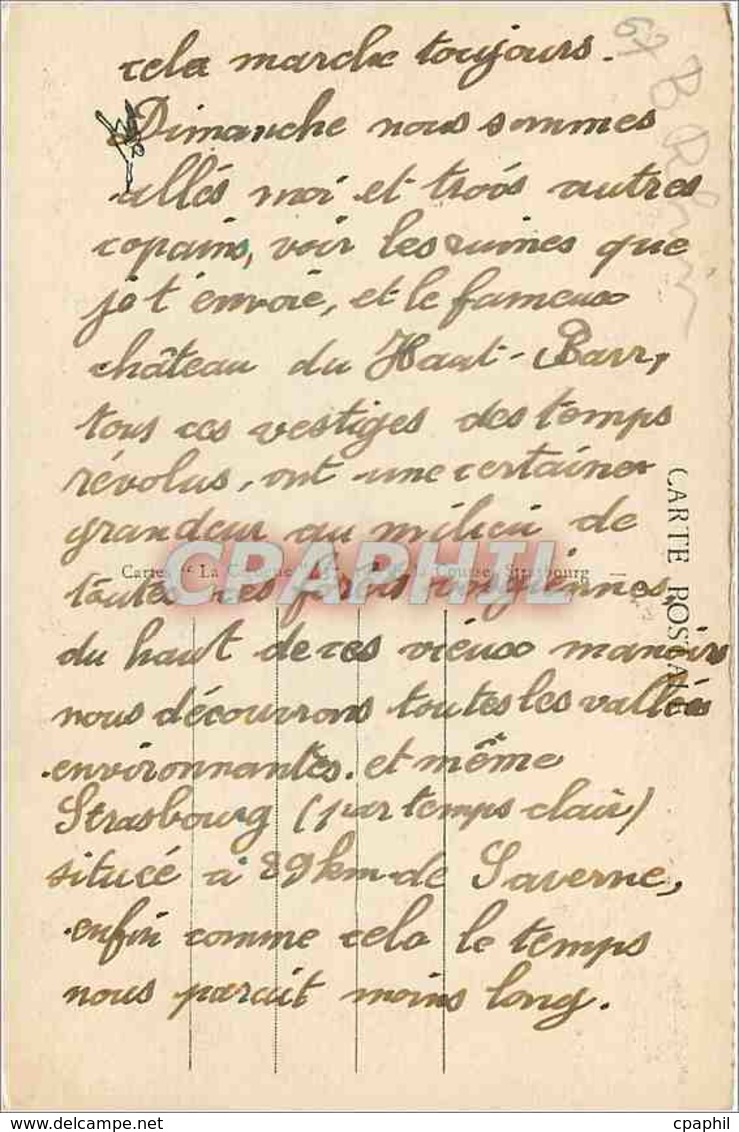 cela marche toujours.
Dimanche nous sommes
allés moi et trois autres
copains, voir les ruines que
je t'envoie, et le fameux
château du Haut-Barr,
tous ces vestiges des temps
révolus, ont une certaine
grandeur au milieu de
toutes ces forêts vosgiennes,
du haut de ces vieux manoirs
nous découvrons toutes les vallées
environnantes. et même
Strasbourg (par temps clair)
située à 39 km de Saverne,
enfin comme cela le temps
nous parait moins long.
67
CARTE POSTALE
Cartes "La Cigogne" Strasbourg
CPAPHIL
delcampe.net
cpaphil